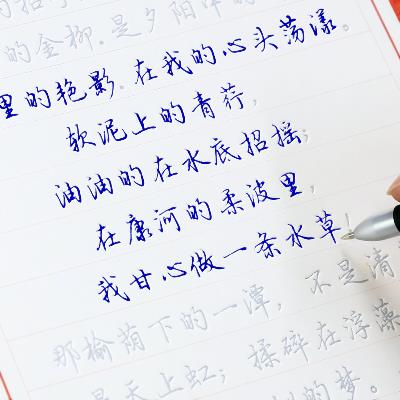 的金柳,是夕阳中的
里的艳影,在我的心头荡漾。
软泥上的青荇,
油油的在水底招摇;
在康河的柔波里,
我甘心做一条水草!
那榆荫下的一潭, 不是清
是天上虹; 揉碎在浮藻
的梦。